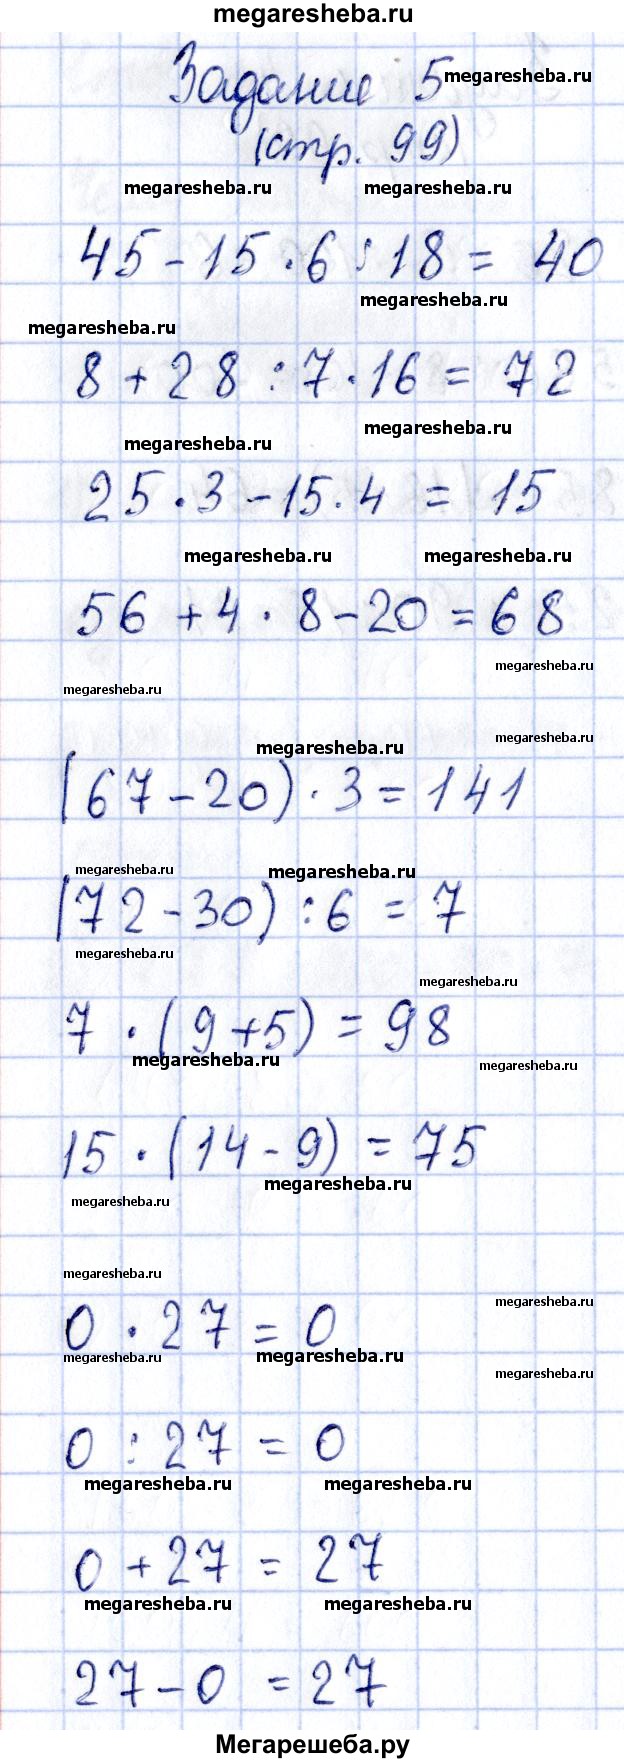 megaresheba.ru
Задание 5 megaresheba.ru
(стр. 99)
megaresheba.ru megaresheba.ru
45 - 15 · 6 : 18 = 40
megaresheba.ru
megaresheba.ru
8 + 28 : 7 · 16 = 72
megaresheba.ru
megaresheba.ru
25 · 3 - 15 · 4 = 15
megaresheba.ru megaresheba.ru
56 + 4 · 8 - 20 = 68
megaresheba.ru
megaresheba.ru
megaresheba.ru
megaresheba.ru
(67 - 20) · 3 = 141
megaresheba.ru megaresheba.ru
(72 - 30) : 6 = 7
megaresheba.ru
megaresheba.ru
7 · (9 + 5) = 98
megaresheba.ru megaresheba.ru
15 · (14 - 9) = 75
megaresheba.ru
megaresheba.ru
megaresheba.ru
megaresheba.ru
0 · 27 = 0
megaresheba.ru megaresheba.ru
megaresheba.ru
0 : 27 = 0
megaresheba.ru megaresheba.ru
0 + 27 = 27
megaresheba.ru megaresheba.ru
27 - 0 = 27
Мегарешеба.ру